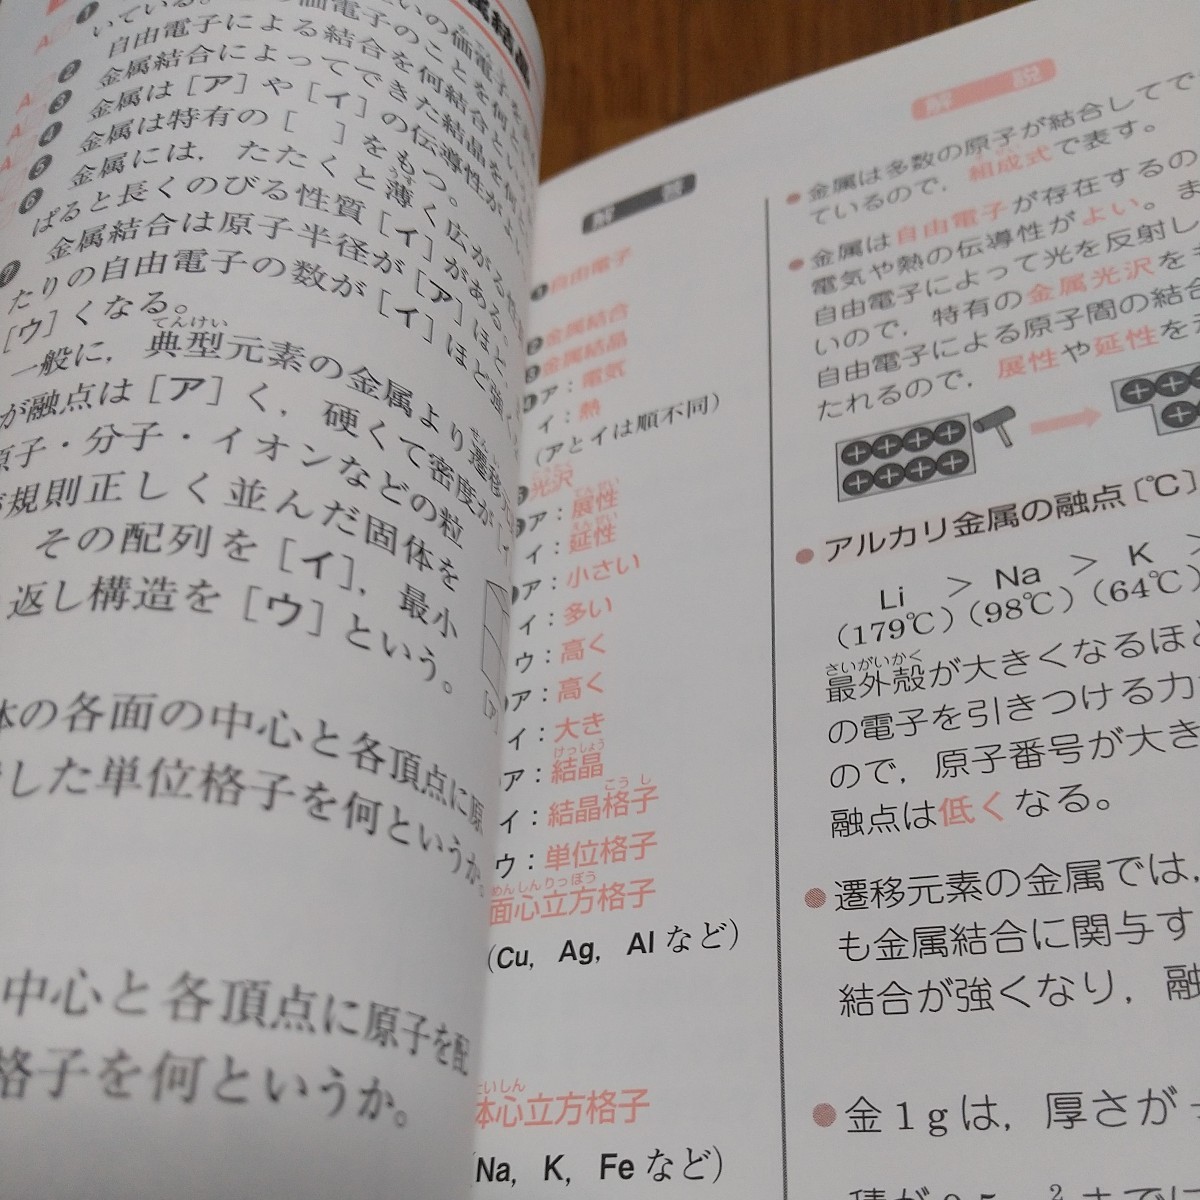 いている。
価電子のことを何と
自由電子による結合を何結合と
金属結合によってできた結晶を何
金属は［ア］や［イ］の伝導性が
金属は特有の［　］をもつ。
金属には，たたくと薄く広がる
ぱると長くのびる性質［イ］がある。
金属結合は原子半径が［ア］ほど，
たりの自由電子の数が［イ］ほど強
［ウ］くなる。
一般に，典型元素の金属より遷移
が融点は［ア］く，硬くて密度が
原子・分子・イオンなどの粒
規則正しく並んだ固体を
その配列を［イ］，最小
返し構造を［ウ］という。
体の各面の中心と各頂点に原
した単位格子を何というか。
中心と各頂点に原子を配
格子を何というか。
解　答
❶自由電子
❷金属結合
❸金属結晶
ア：電気
イ：熱
（アとイは順不同）
光沢
ア：展性
イ：延性
ア：小さい
イ：多い
ウ：高く
ア：高く
イ：大き
ア：結晶
イ：結晶格子
ウ：単位格子
面心立方格子
（Cu, Ag, Alなど）
体心立方格子
（Na, K, Feなど）
解　説
●金属は多数の原子が結合してで
ているので，組成式で表す。
●金属は自由電子が存在するの
電気や熱の伝導性がよい。ま
自由電子によって光を反射し
いので，特有の金属光沢を
自由電子による原子間の結合
たれるので，展性や延性を
●アルカリ金属の融点〔℃〕
Li > Na > K >
(179℃) (98℃) (64℃)
最外殻が大きくなるほど
の電子を引きつける力
ので，原子番号が大き
融点は低くなる。
●遷移元素の金属では，
も金属結合に関与す
結合が強くなり，融
●金1gは，厚さが